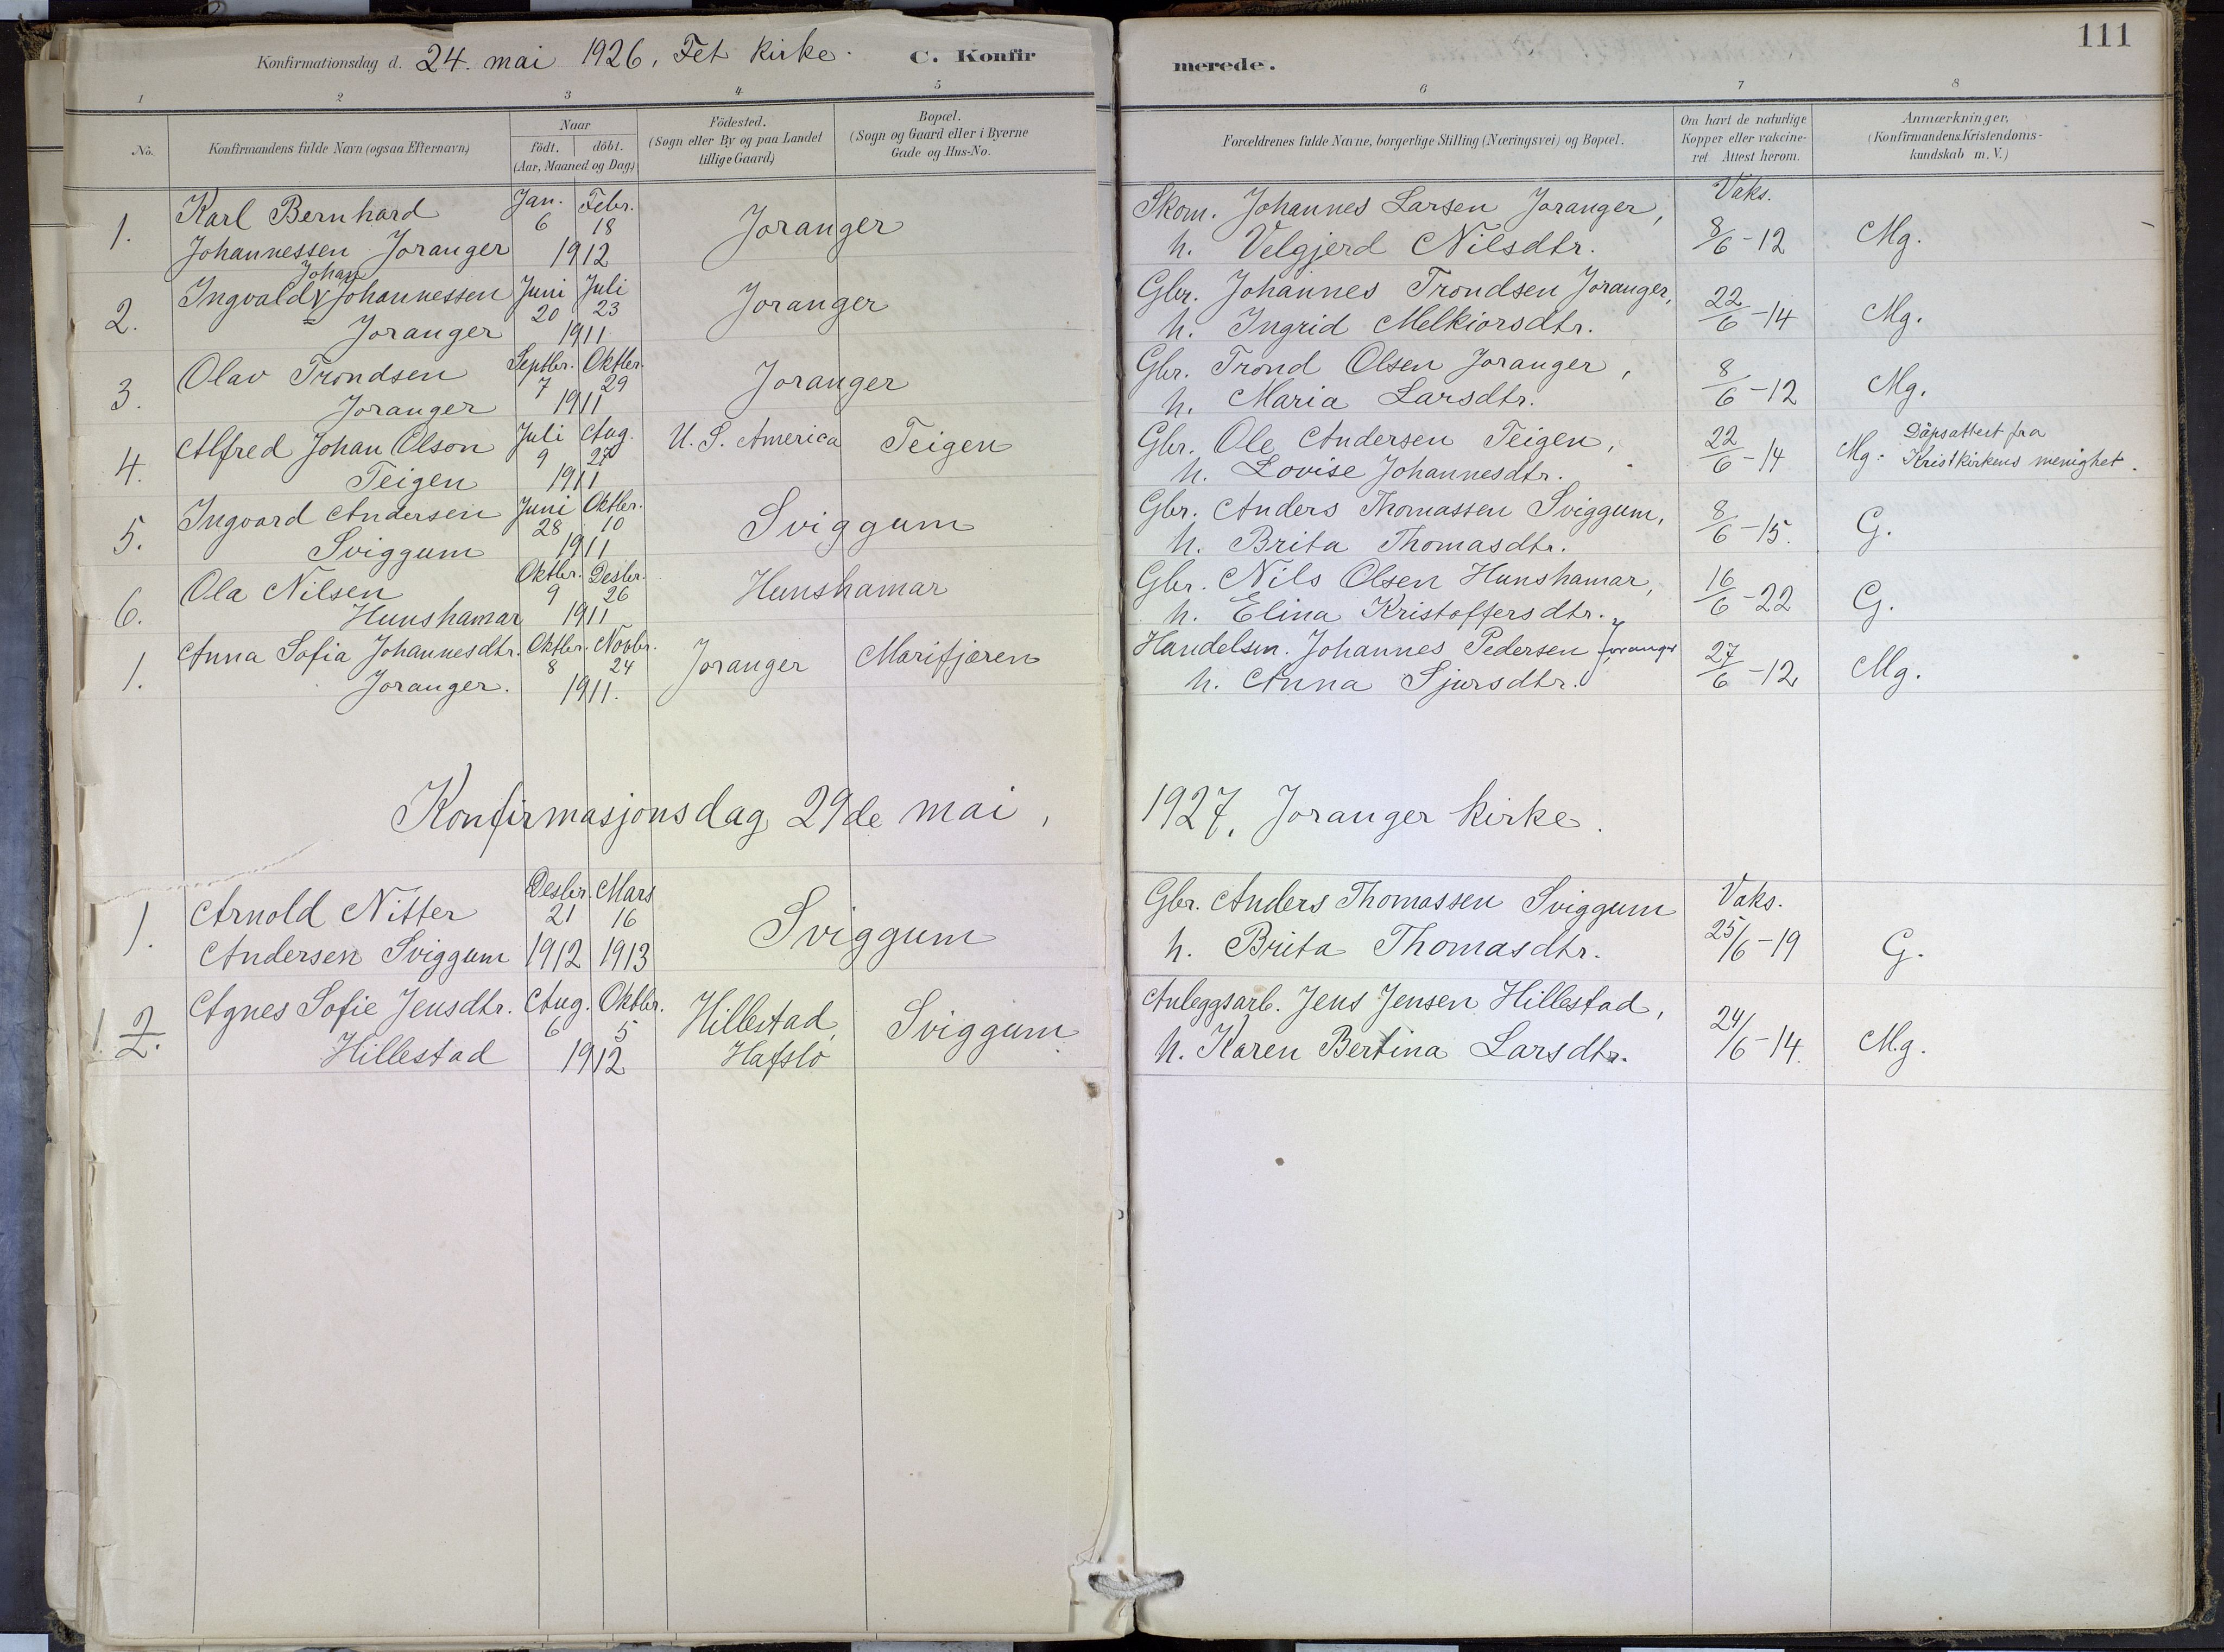 111
Konfirmationsdag d. 24. mai 1926, Fet kirke. C. Konfirmerede.
1 2 3 4 5 6 7 8
No.
Konfirmandens fulde Navn (ogsaa Efternavn)
Naar
födt. döbt.
(Aar, Maaned og Dag)
Födested.
(Sogn eller By og paa Landet
tillige Gaard.)
Bopæl.
(Sogn og Gaard eller i Byerne
Gade og Hus-No.
Forældrenes fulde Navne, borgerlige Stilling (Næringsvei) og Bopæl.
Om havt de naturlige
Kopper eller vakcine-
ret Attest herom.
Anmærkninger.
(Konfirmandens Kristendoms-
kundskab m. V.)
1. Karl Bernhard Jan. Febr. Joranger Skom. Johannes Larsen Joranger, Vaks.
Johannessen Joranger 6 18 1912 h. Velgjerd Nilsdtr. 8/6-12 Mg.
Johan
2. Ingvald Johannessen Juni Juli Joranger Gbr. Johannes Trondsen Joranger, 22/6-14 Mg.
Joranger 20 23 1911 h. Ingrid Melkiorsdtr.
3. Olav Trondsen Septbr. Oktbr. Joranger Gbr. Trond Olsen Joranger, 8/6-12 Mg.
Joranger 7 29 1911 h. Maria Larsdtr.
4. Alfred Johan Olson Juli Aug. U. S. America Teigen Gbr. Ole Andersen Teigen, 22/6-14 Mg. Dåpsattest fra
Teigen 9 27 1911 h. Lovise Johannesdtr. Kristkirkens menighet.
5. Ingvard Andersen Juni Oktbr. Sviggum Gbr. Anders Thomassen Sviggum, 8/6-15. G.
Sviggum 28 10 1911 h. Brita Thomasdtr.
6. Ola Nilsen Oktbr. Desbr. Hunshamar Gbr. Nils Olsen Hunshamar, 16/6-22 G.
Hunshamar 9 26 1911 h. Elina Kristoffersdtr.
1. Anna Sofia Johannesdtr. Oktbr. Novbr. Joranger Marifjæren Handelsm. Johannes Pedersen } Joranger 27/6-12 Mg.
Joranger. 8 24 1911. h. Anna Sjursdtr.
Konfirmasjonsdag 29de mai, 1927, Joranger kirke.
1. Arnold Nitter Desbr. Mars Sviggum Gbr. Anders Thomassen Sviggum Vaks.
Andersen Sviggum 21 16 1912 1913 h. Brita Thomasdtr. 25/6-19 G.
1. 2. Agnes Sofie Jensdtr. Aug. Oktbr. Hillestad, Sviggum Anleggsarb. Jens Jensen Hillestad, 24/6-14. Mg.
Hillestad 6 5 1912 Hafslo h. Karen Bertina Larsdtr.